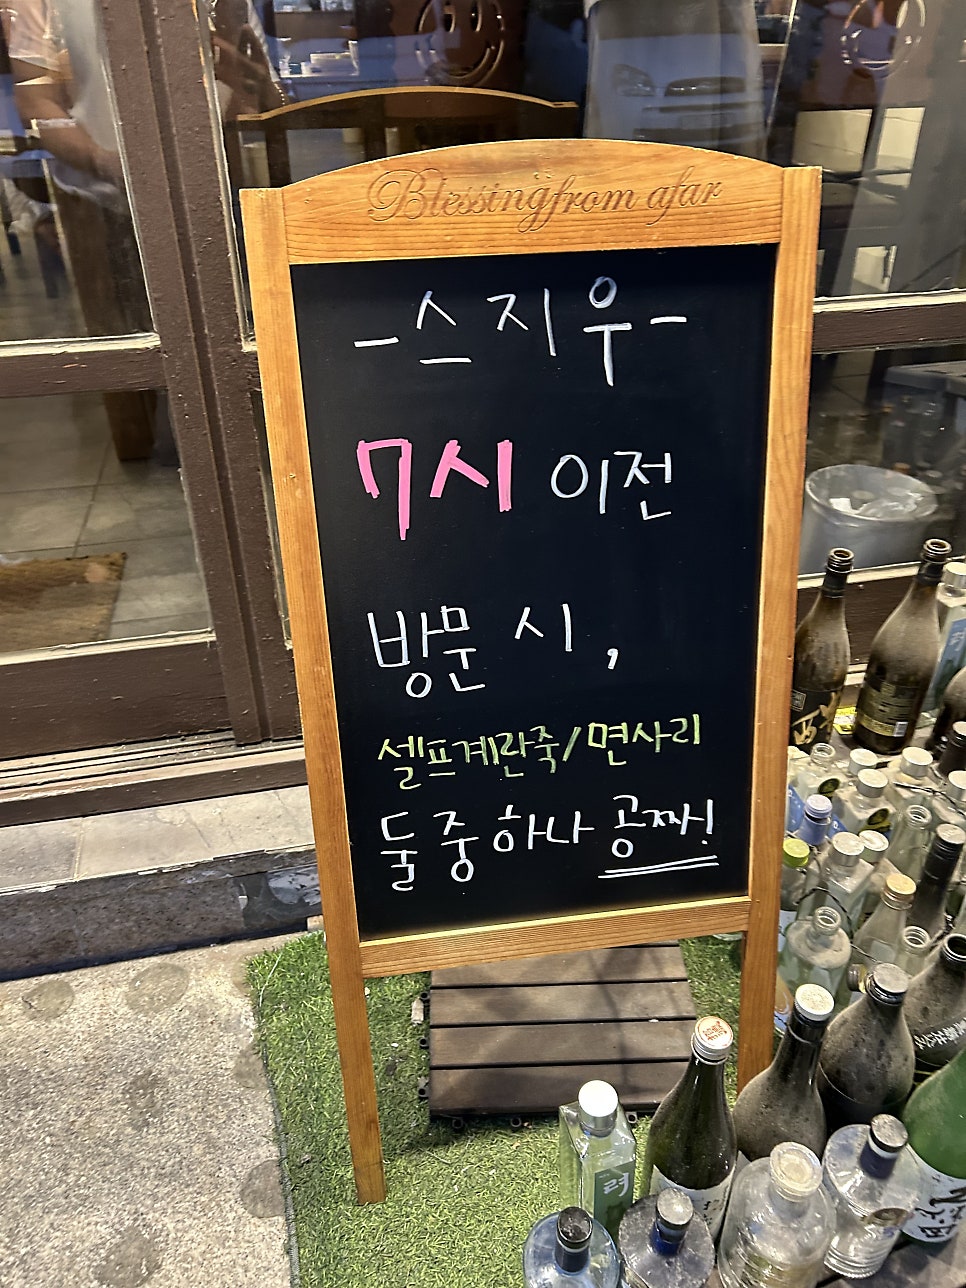 Blessing from afar
-스지우-
7시 이전
방문 시,
셀프계란죽/면사리
둘 중 하나 공짜!
려